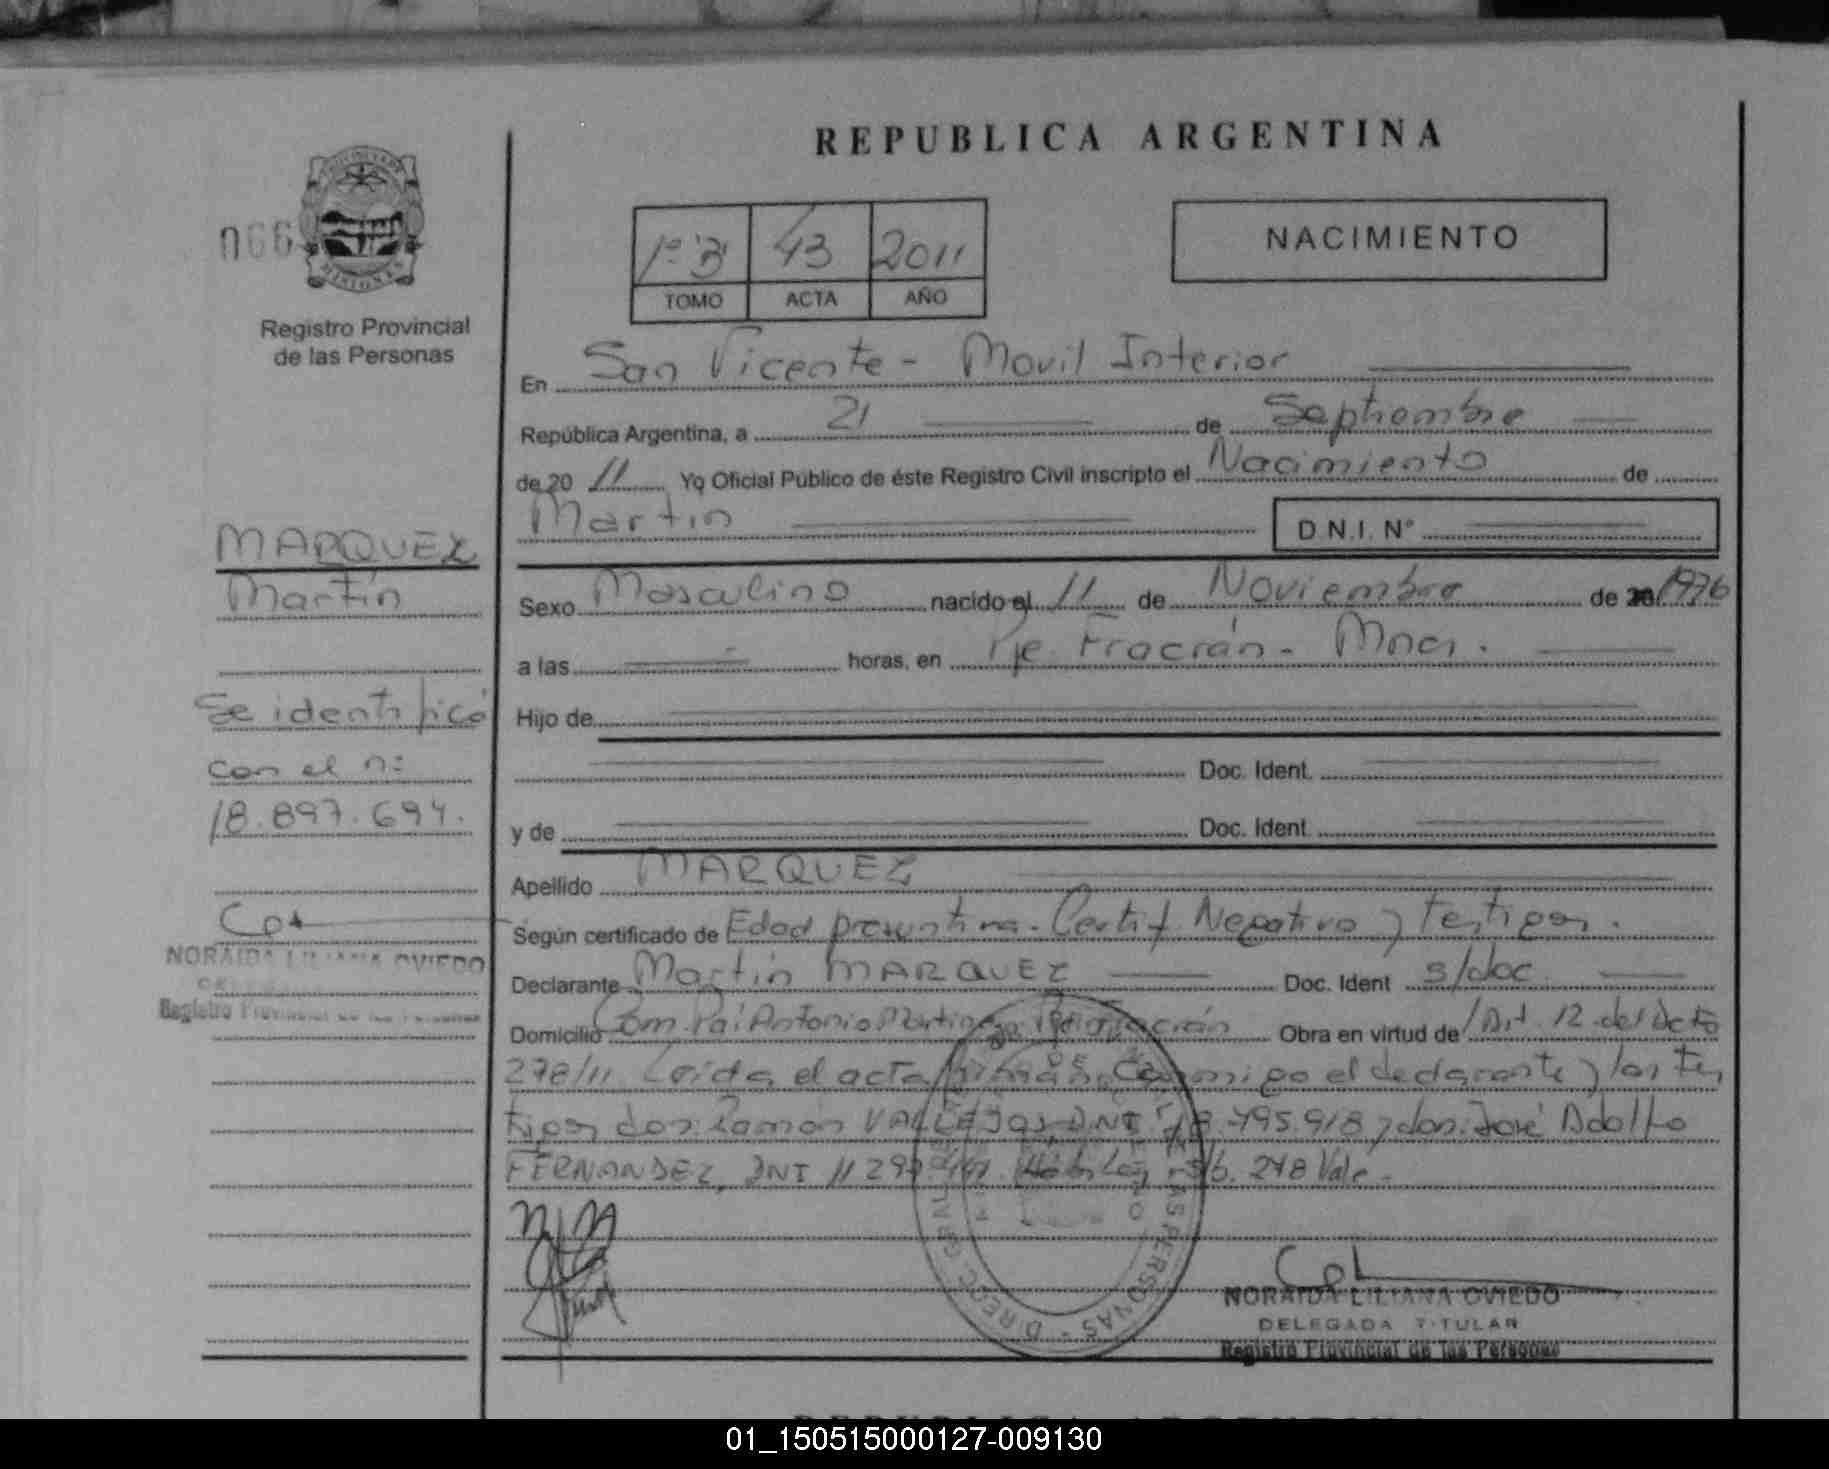 REPUBLICA ARGENTINA
066
PROVINCIA DE
MISIONES
Registro Provincial
de las Personas
1º "B" 43 2011
TOMO ACTA AÑO
NACIMIENTO
En San Vicente - Movil Interior
República Argentina, a 21 de Septiembre
de 20 11 Yo Oficial Público de éste Registro Civil inscripto el Nacimiento de
Martin D.N.I. Nº
MARQUEZ
Martín
Sexo Masculino nacido el 11 de Noviembre de 20 1976
a las horas, en Pje. Fracrán - Mnes.
Se identificó
con el n:
18.897.694.
Hijo de
Doc. Ident.
y de Doc. Ident.
Apellido MARQUEZ
Según certificado de Edad presuntiva - Certif. Negativo y Testigos.
Declarante Martín MARQUEZ Doc. Ident s/doc.
Domicilio Com. Pai Antonio Martinez Fracrán Obra en virtud de Art. 12 del Dcto
278/11 Leída el acta firman conmigo el declarante y los tes
tigos don: Ramón VALLEJOS, DNI 18.795.918 y don: José Adolfo
FERNANDEZ, DNI 11 297. s/b. 278 Vale.
NORAIDA LILIANA OVIEDO
Registro Provincial de las Personas
NORAIDA LILIANA OVIEDO
DELEGADA TITULAR
Registro Provincial de las Personas
DIRECC GENERAL PERSONAS
01_150515000127-009130